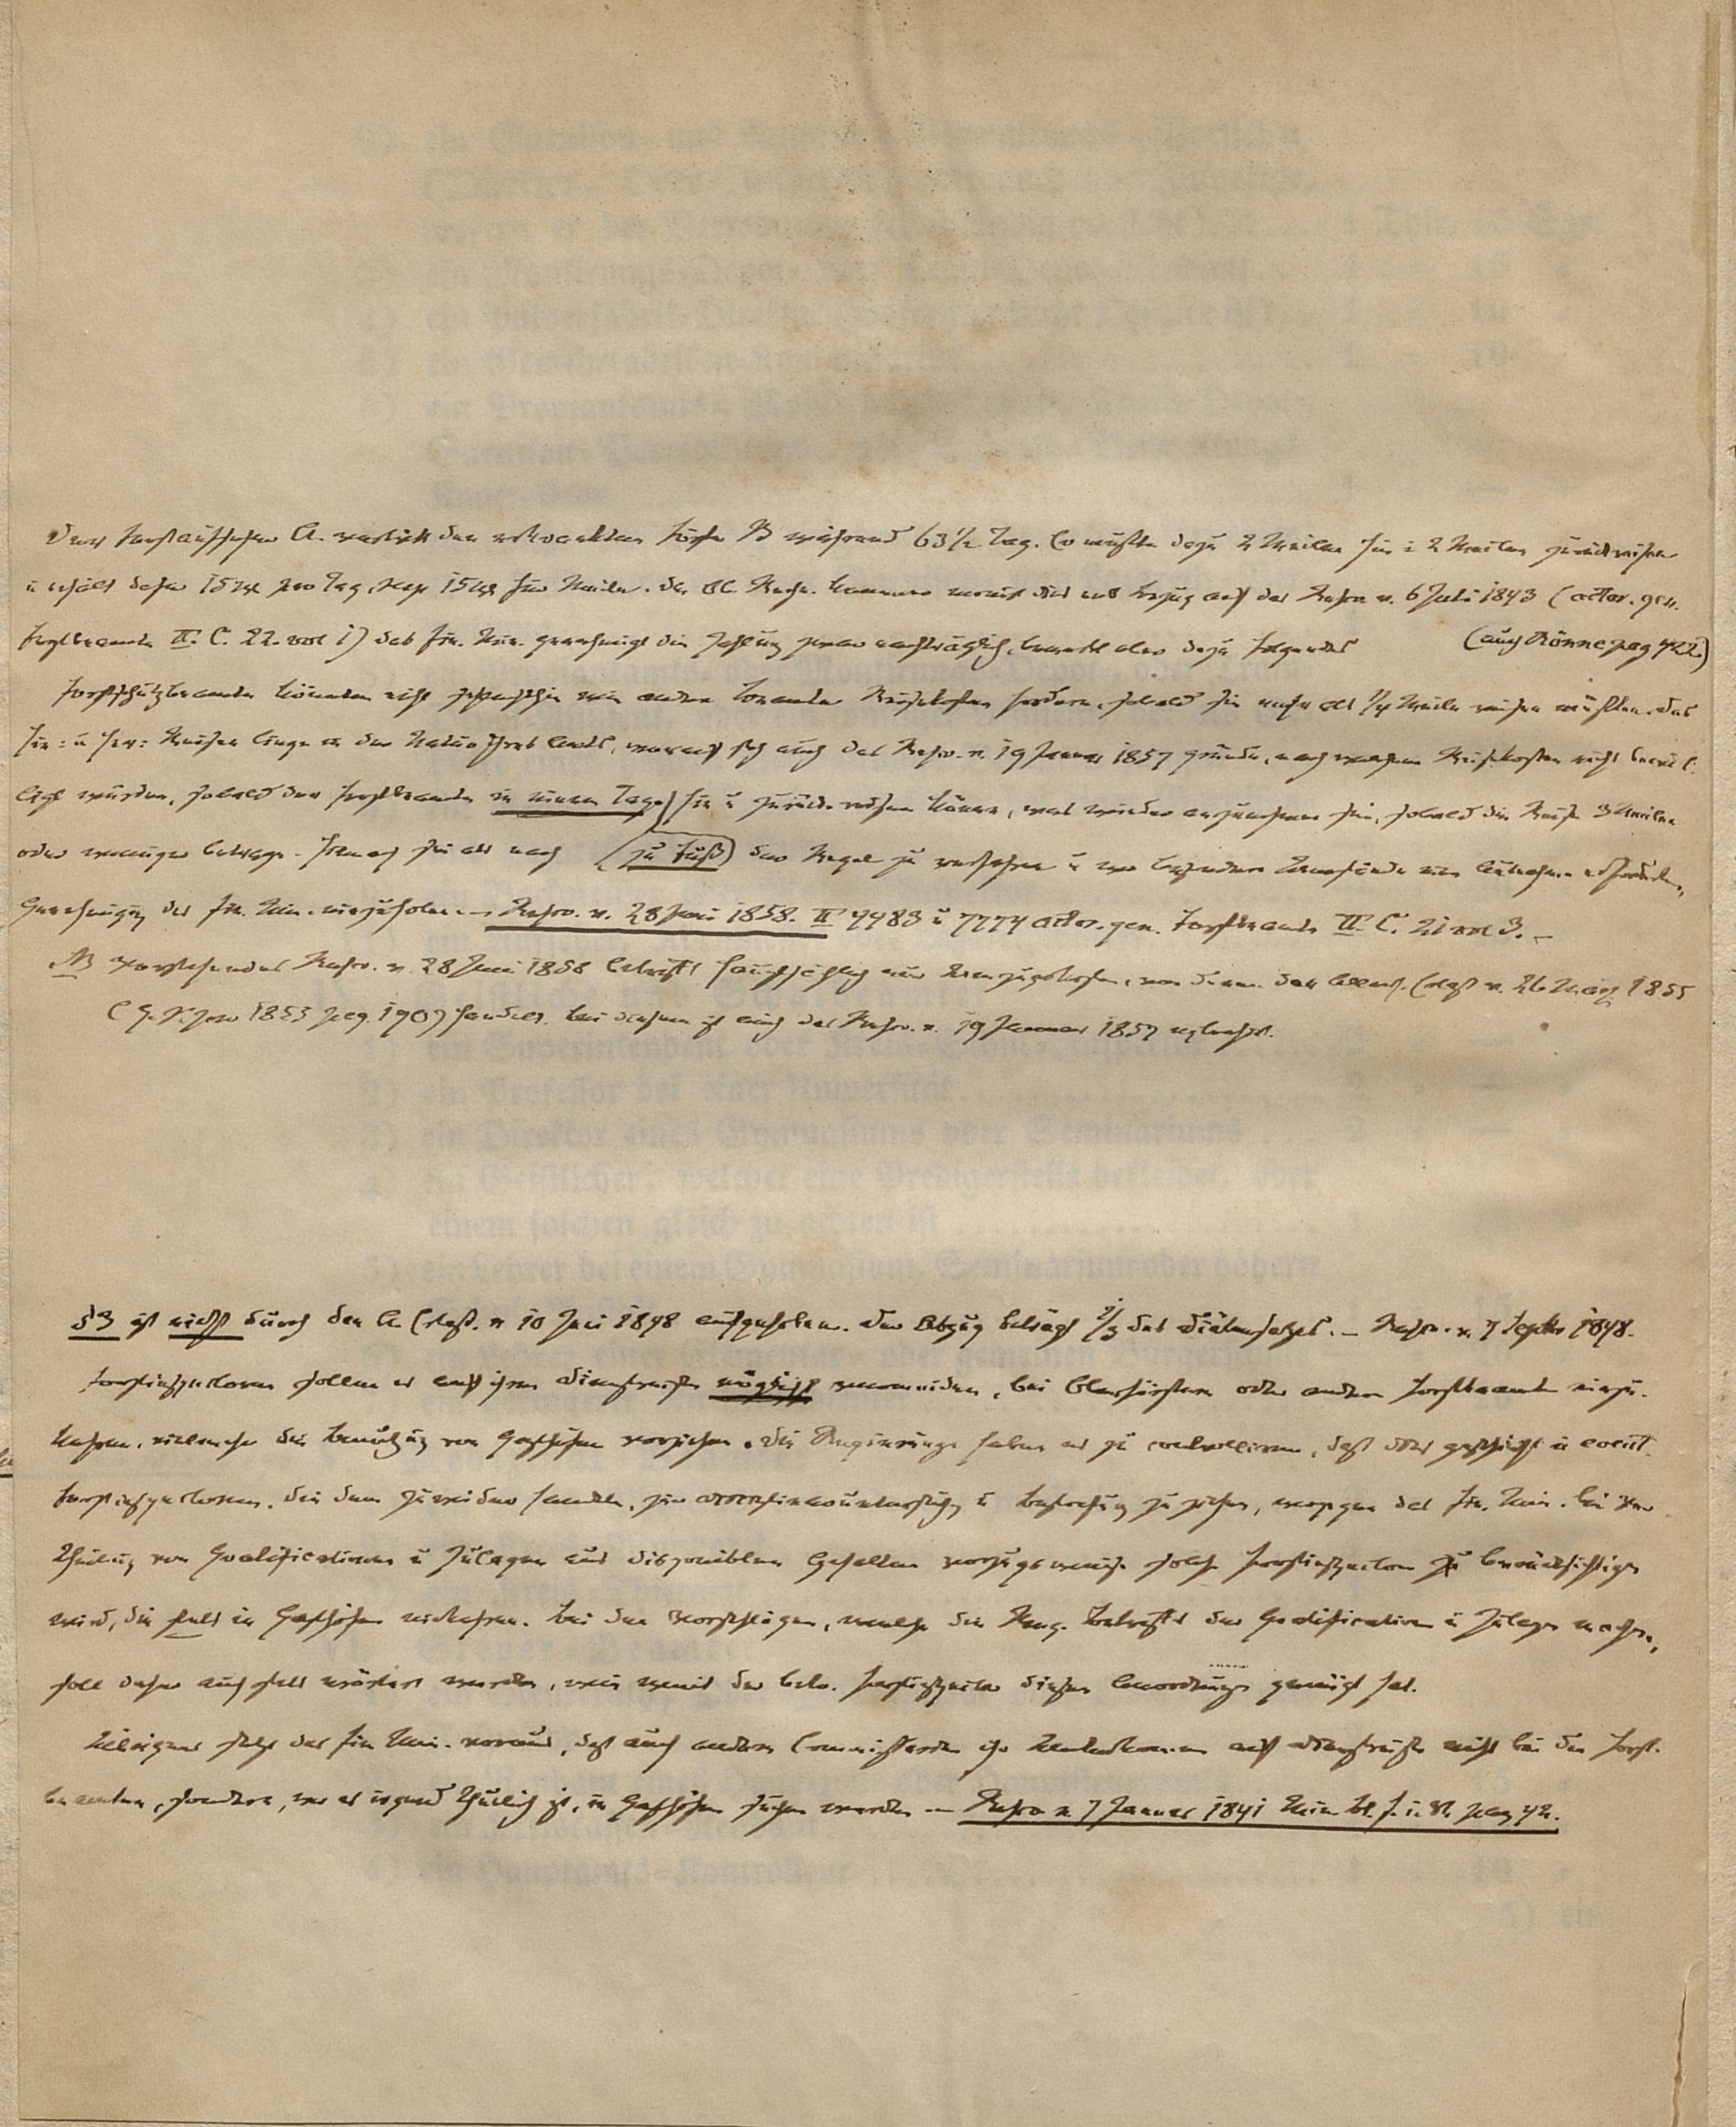 Der Forstaufseher A. vertritt den erkrankten Förster B während 63 1/2 Tag. Er mußte dazu 2 Meilen hin u 2 Meilen zurückreisen
u erhält dafür 15 Sgr pro Tag, resp 15 Sgr für Meile. Die Ob. Rechn. Kammer monirt dies mit Bezug auf das Rescr v. 6 Juli 1843 (actor. gen.
Forstbeamte II. C. 22. vol 1) das Fin. Min. genehmigt die Zahlung zwar nachträglich, bemerkt aber dazu folgendes (auch Rönne pag 422)
Forstschutzbeamte könnten nicht schlechthin wie andere Beamte Reisekosten fordern, sobald sie mehr als 1/4 Meile reisen müßten. Das
Hin- u Her- Reisen liege in der Natur ihres Amts, worauf sich auch das Rescr. v. 19 Januar 1857 gründe, nach welchem Reisekosten nicht bewil-
ligt würden, sobald der Forstbeamte in einem Tage hin u zurück reisen könne, was wieder anzunehmen sei, sobald die Reise 3 Meilen
oder weniger betrage. Hiernach sei als nach (zu Fuß) der Regel zu verfahren u wo besondere Umstände eine Ausnahme erfordern,
Genehmigung des Fin. Min. einzuholen. — Rescr. v. 28 Juni 1858. II 4483 u 7774 actor. gen. Forstbeamte II. C. 21 vol 3. —
NB Vorstehendes Rescr. v. 28 Juni 1858 betrifft hauptsächlich nur Umzugskosten, von denen der Allerh. Erlaß v. 26 März 1855
(G. S. pro 1855 pag. 190) handelt. Bei diesem ist auch das Rescr. v. 19 Januar 1857
§3 ist nicht durch den A. Erlaß. v 10 Juni 1848 aufgehoben. Der Abzug beträgt 1/3 des Diätensatzes. — Rescr. v. 7 Septbr 1848.
Forstinspectoren sollen es auf ihren Dienstreisen möglichst vermeiden, bei Oberförstern oder andern Forstbeamten einzu-
kehren, vielmehr die Benutzung von Gasthöfen vorziehen. Die Regierungen haben es zu controlliren, daß dies geschieht u event.
Forstinspectoren, die dem zuwider handeln, zur Untersuchung u Bestrafung zu ziehen, wogegen das Fin. Min. bei Ver-
theilung von Gratificationen u Zulagen aus disponiblen Gehalten vorzugsweise solche Forstinspectoren zu berücksichtigen
wird, die stets in Gasthöfen einkehren. Bei den Vorschlägen, welche die Reg. betreffs der Gratification u Zulagen machen,
soll daher auch stets erörtert werden, wie weit der betr. Forstinspector diesen Anordnungen genügt hat.
Uebrigens setzt das Fin Min. voraus, daß auch andere Commissarien ihr Unterkommen auf Dienstreisen nicht bei den Forst-
beamten, sondern, wo es irgend thunlich ist, in Gasthöfen suchen werden — Rescr v. 7 Januar 1841 Min. bl. f. i. V. pag 42.